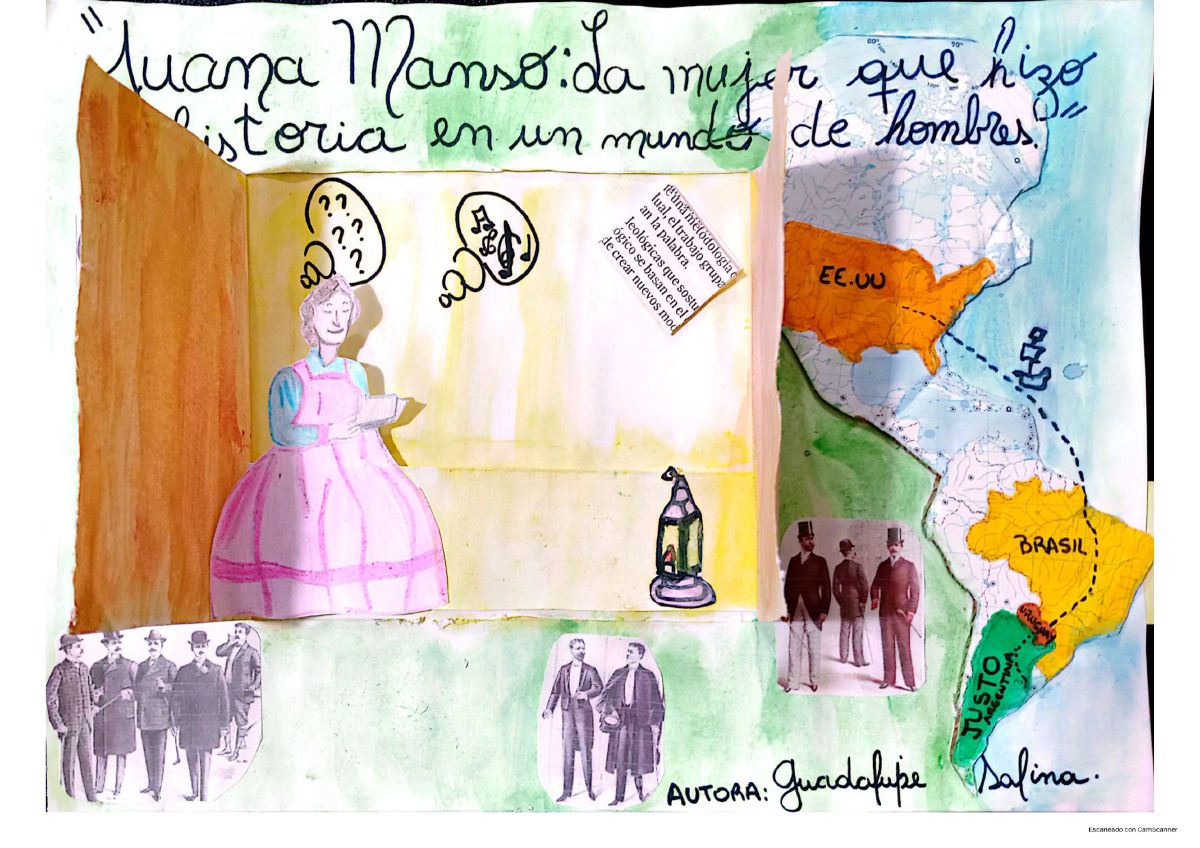 "Juana Manso: La mujer que hizo
historia en un mundo de hombres."
? ?
? ?
?
una metodología
lual, el trabajo grupa
an la palabra.
leológicas que sostu
ógico se basan en el
de crear nuevos mod
80° 70°
EE.UU
BRASIL
URUGUAY
JUSTO
ARGENTINA
AUTORA: Guadalupe Salina.
Escaneado con CamScanner